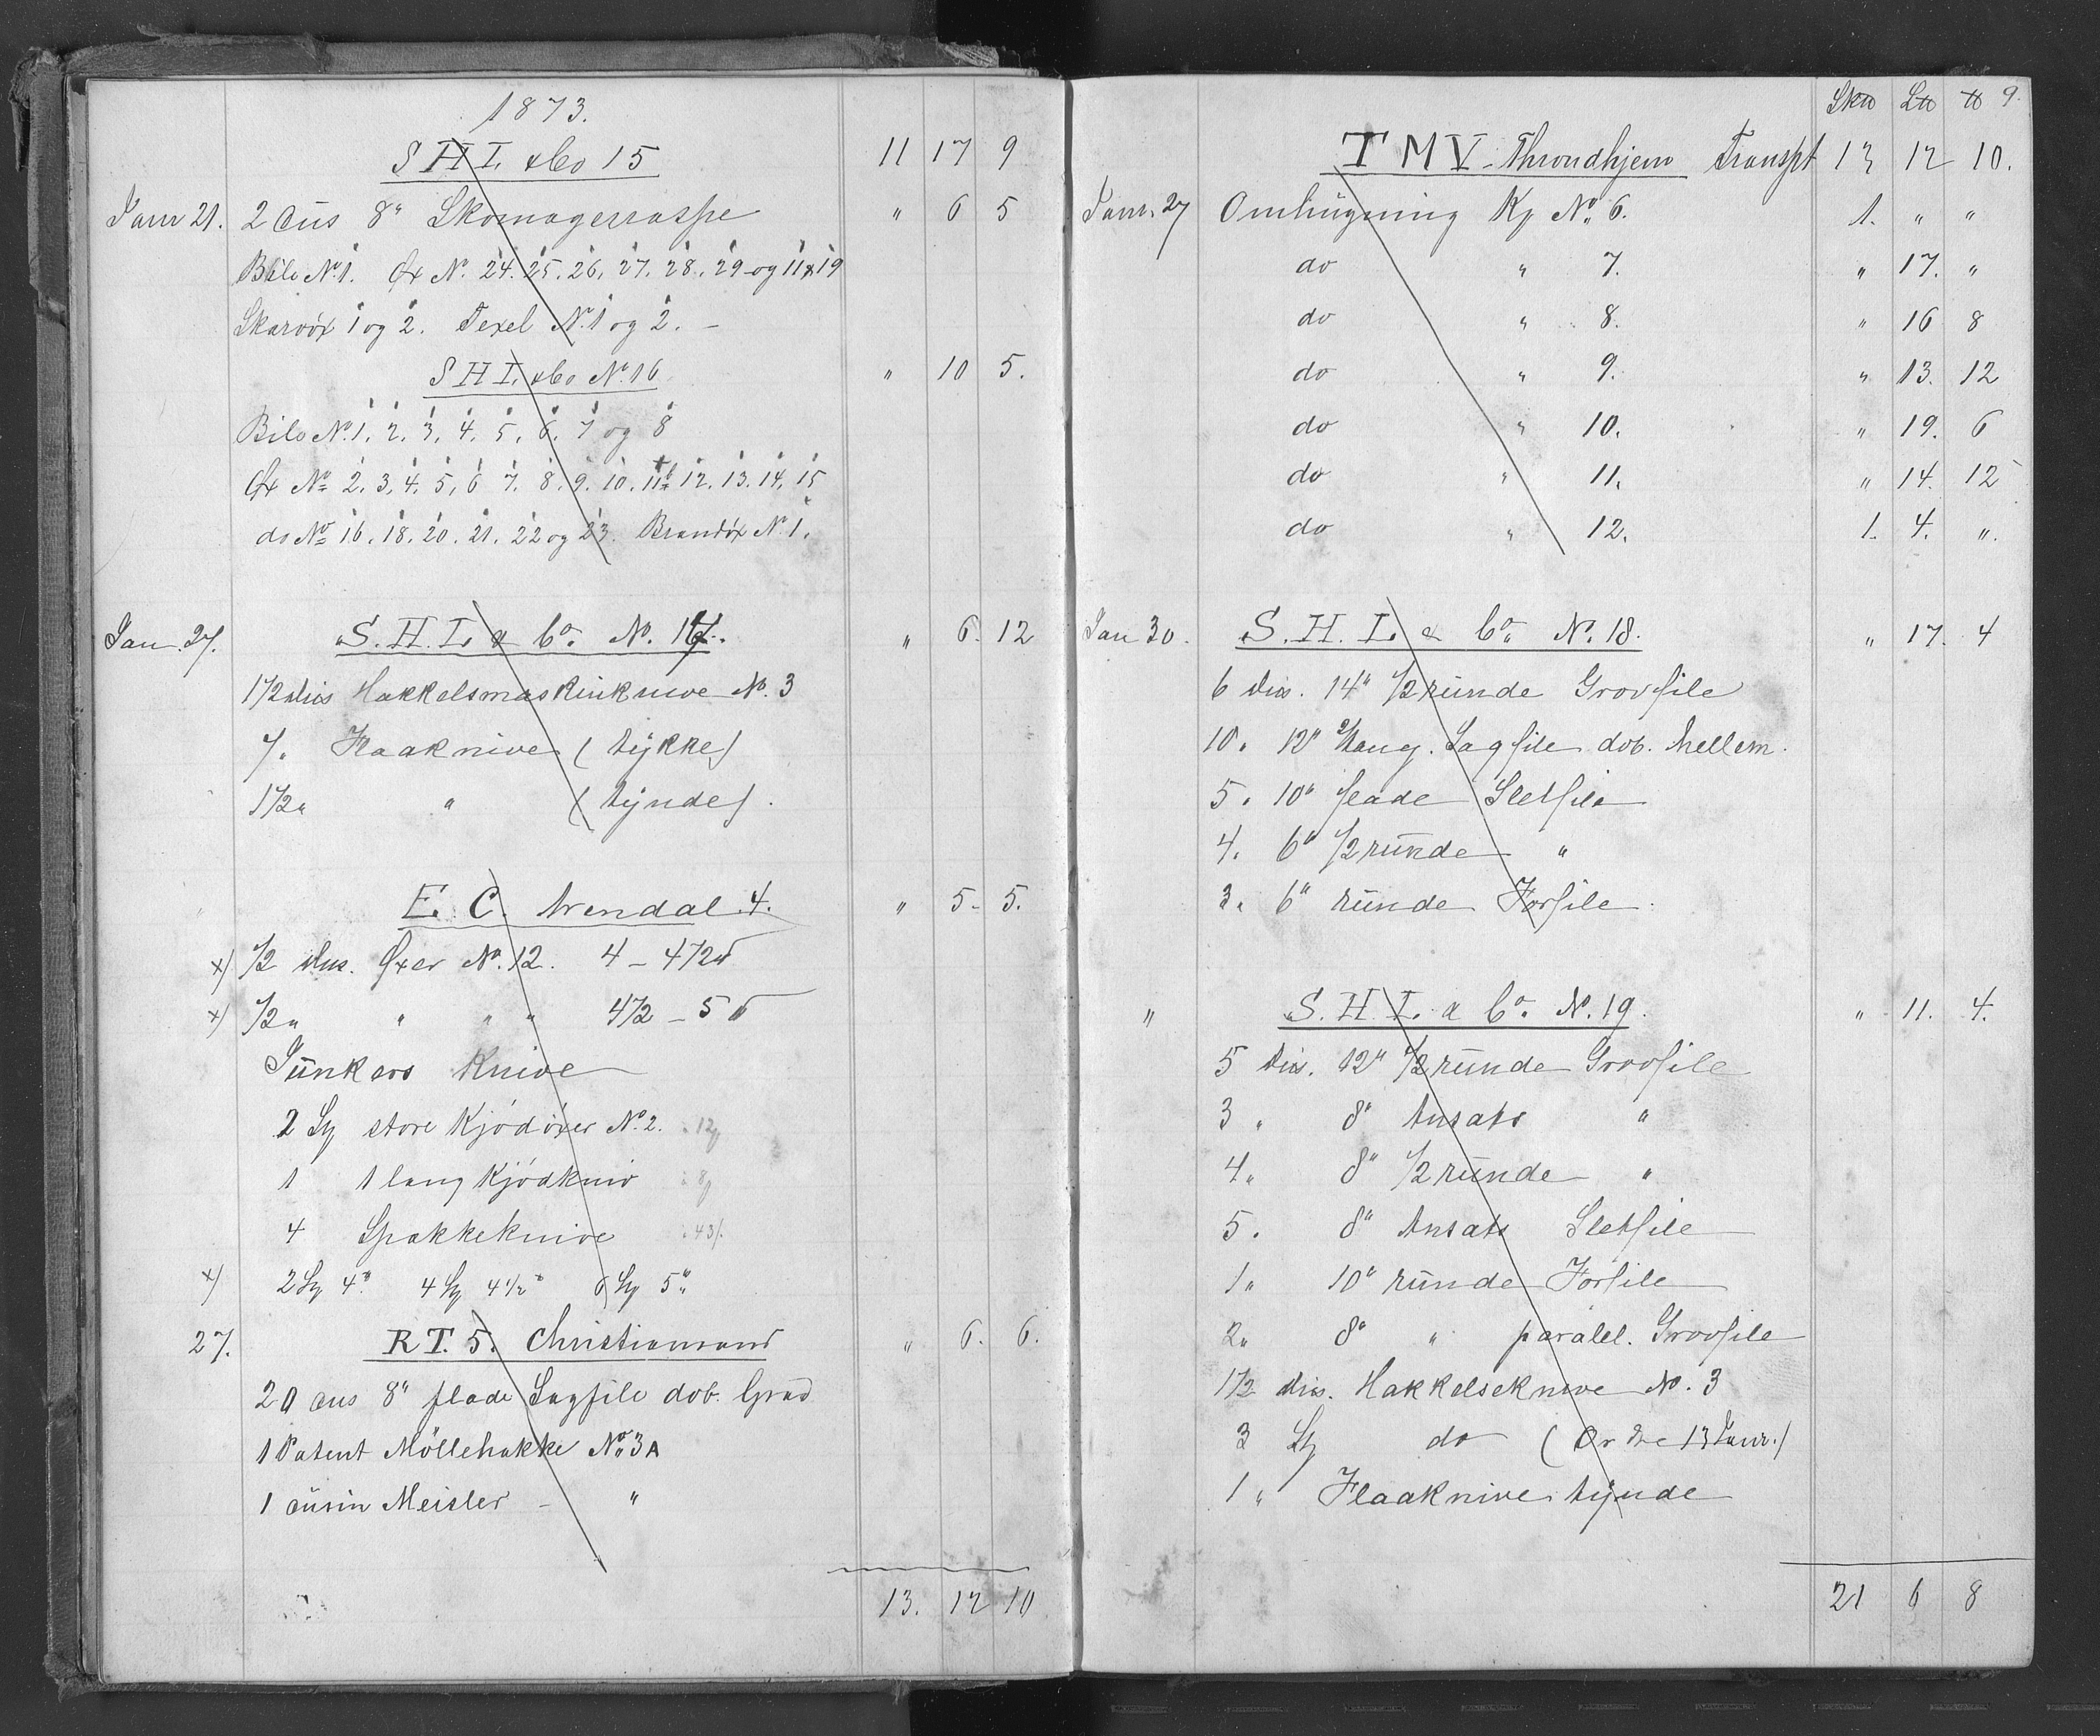 1873.
S H L &Co 15 11 17 9
Janr 21. 2 Dus 8" Skomagerraspe " 6 5
Bile No 1. Øx No. 24. 25. 26. 27. 28. 29 og 11 x 19
Skarøx 1 og 2. Texel No. 1 og 2. –
S H L &Co No. 16 " 10 5.
Bile No. 1. 2. 3. 4. 5. 6. 7 og 8
Øx No 2. 3. 4. 5. 6 7. 8. 9. 10. 11 12. 13. 14. 15
do No 16. 18. 20. 21. 22 og 23. Brandøx No 1.
Jan. 27. S. H. L. & Co. No. 17. " 6. 12
1 1/2 dus Hakkelsmaskinknive No. 3
7. Flaaknive (tykke)
1/2 " " (tynde).
E. C. Arendal 4. " 5. 5.
x) 1/2 dus. Øxer No. 12. 4 – 4 1/2 ℔
x) 1/2 " " " " 4 1/2 – 5 ℔
Junkers Knive
2 Sty store Kjødøxer No. 2.
1 1 lang Kjødkniv
4 Spækkeknive
x) 2 Sty 4" 4 Sty 4 1/2" 6 Sty 5"
27. R T. 5. Christiansand " 6. 6.
20 dus 8" flade Sagfile dob. Grad
1 Patent Möllehakke No. 3 A
1 Meisler – "
13. 12 10
Sk℔ L℔ ℔ 9.
T M V. Throndhjem Transpt 13 12 10.
Janr. 27 Omhugning Kp No. 6. 1. " "
do " 7. " 17. "
do " 8. " 16 8
do " 9. " 13. 12
do " 10. " 19. 6
do " 11. " 14. 12
do " 12. 1. 4. ".
Jan 30. S. H. L. & Co. No. 18. " 17. 4
6 dus. 14" 1/2 runde Grovfile
10. 12" Sagfile dob. Mellem.
5. 10" flade Sletfile
4. 6" 1/2 runde "
3. 6" runde Forfile.
" S. H. L. & Co. No. 19. " 11. 4.
5 dus. 12" 1/2 runde Grovfile
3 " 8" Ansats "
4 " 8" 1/2 runde "
5. 8" Ansats Sletfile
1 " 10" runde Forfile
2 " 8" " paralel. Grovfile
1 1/2 dus. Hakkelseknive No. 3
3 Sty do (Ordre 13 Janr.)
1 " Flaaknive tynde
21 6 8